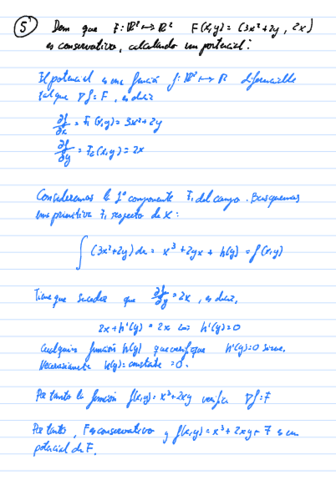 5 Dem que F: ℝ² ↦ ℝ² F(x,y) = (3x²+2y, 2x)
es conservativo, calculando un potencial:
El potencial es una función f: ℝ² ↦ ℝ diferenciable
tal que ∇f = F, es decir
∂f/∂x = F₁(x,y) = 3x²+2y
∂f/∂y = F₂(x,y) = 2x
Consideremos la 1ª componente F₁ del campo. Busquemos
una primitiva F₁ respecto de x:
∫ (3x²+2y) dx = x³ + 2yx + h(y) = f(x,y)
Tiene que suceder que ∂f/∂y = 2x, es decir,
2x + h'(y) = 2x ⟺ h'(y) = 0
Cualquier función h(y) que verifique h'(y)=0 sirve.
h(y) = constante = 0.
Por tanto la función f(x,y) = x³ + 2xy verifica ∇f = F
Por tanto, F es conservativo y f(x,y) = x³ + 2xy + 7 es un
potencial de F.